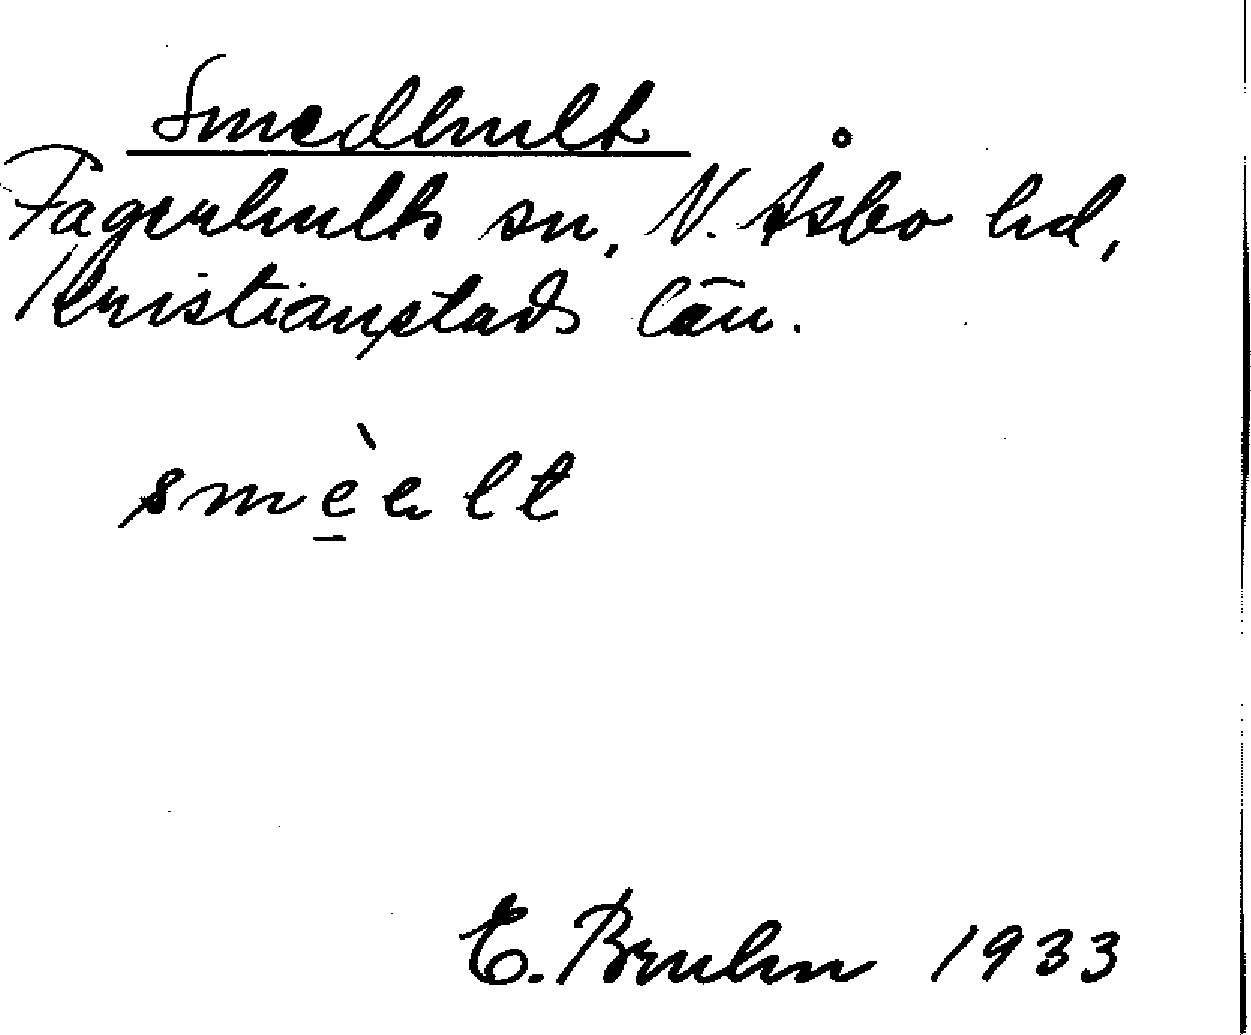 Smedhult
Fagerhults sn, N. Åsbo hd,
Kristianstads län.
smèelt
E. Bruhn 1933